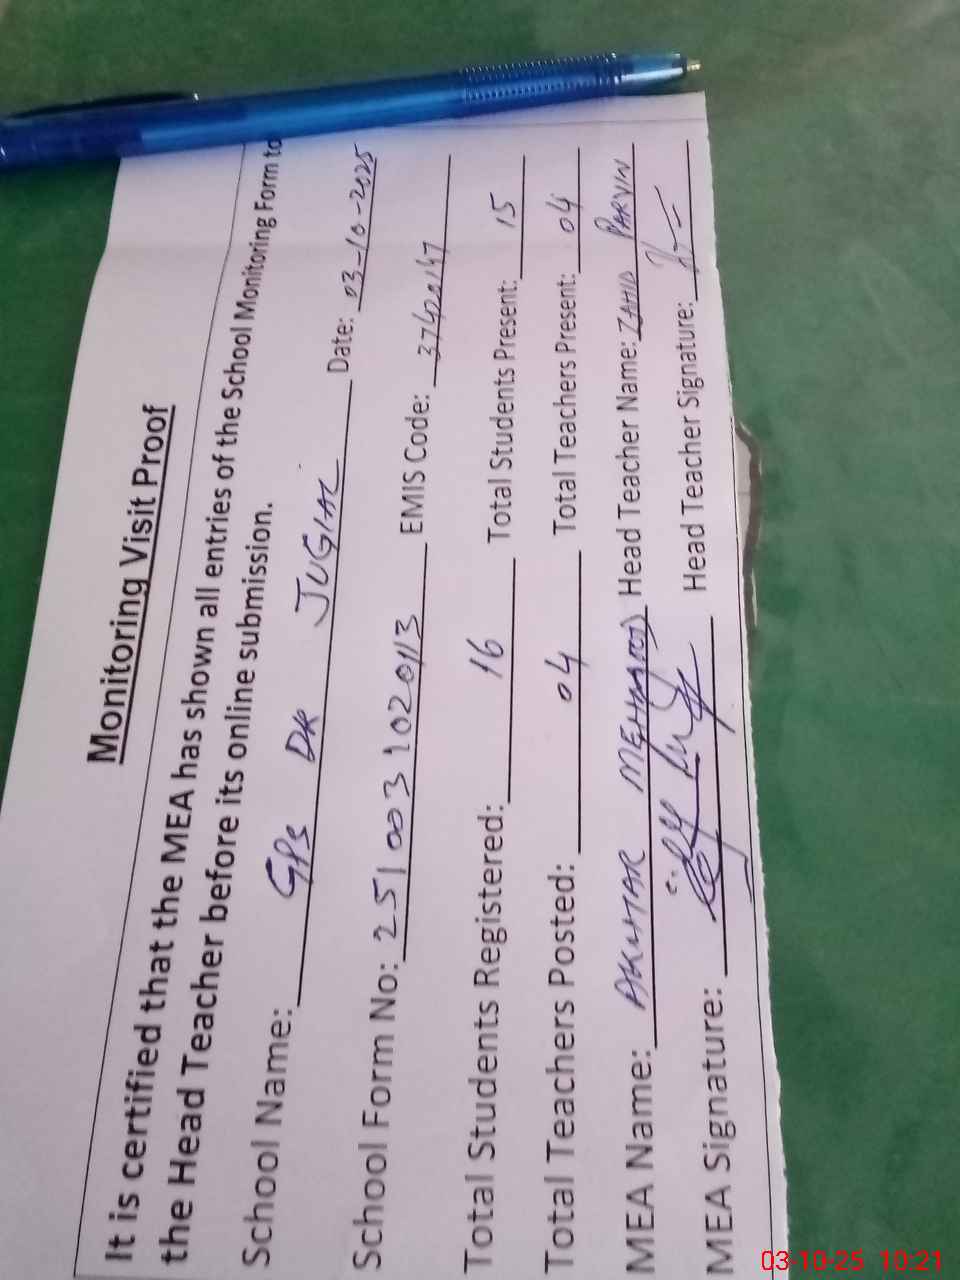 Monitoring Visit Proof
It is certified that the MEA has shown all entries of the School Monitoring Form to
the Head Teacher before its online submission.
School Name: GPS DK JUGIAL Date: 03-10-2025
School Form No: 2510031020113 EMIS Code: 37420147
Total Students Registered: 16 Total Students Present: 15
Total Teachers Posted: 04 Total Teachers Present: 04
MEA Name: MEHMOOD Head Teacher Name: ZAHID PARVIN
MEA Signature: Head Teacher Signature:
03-10-25 10:21